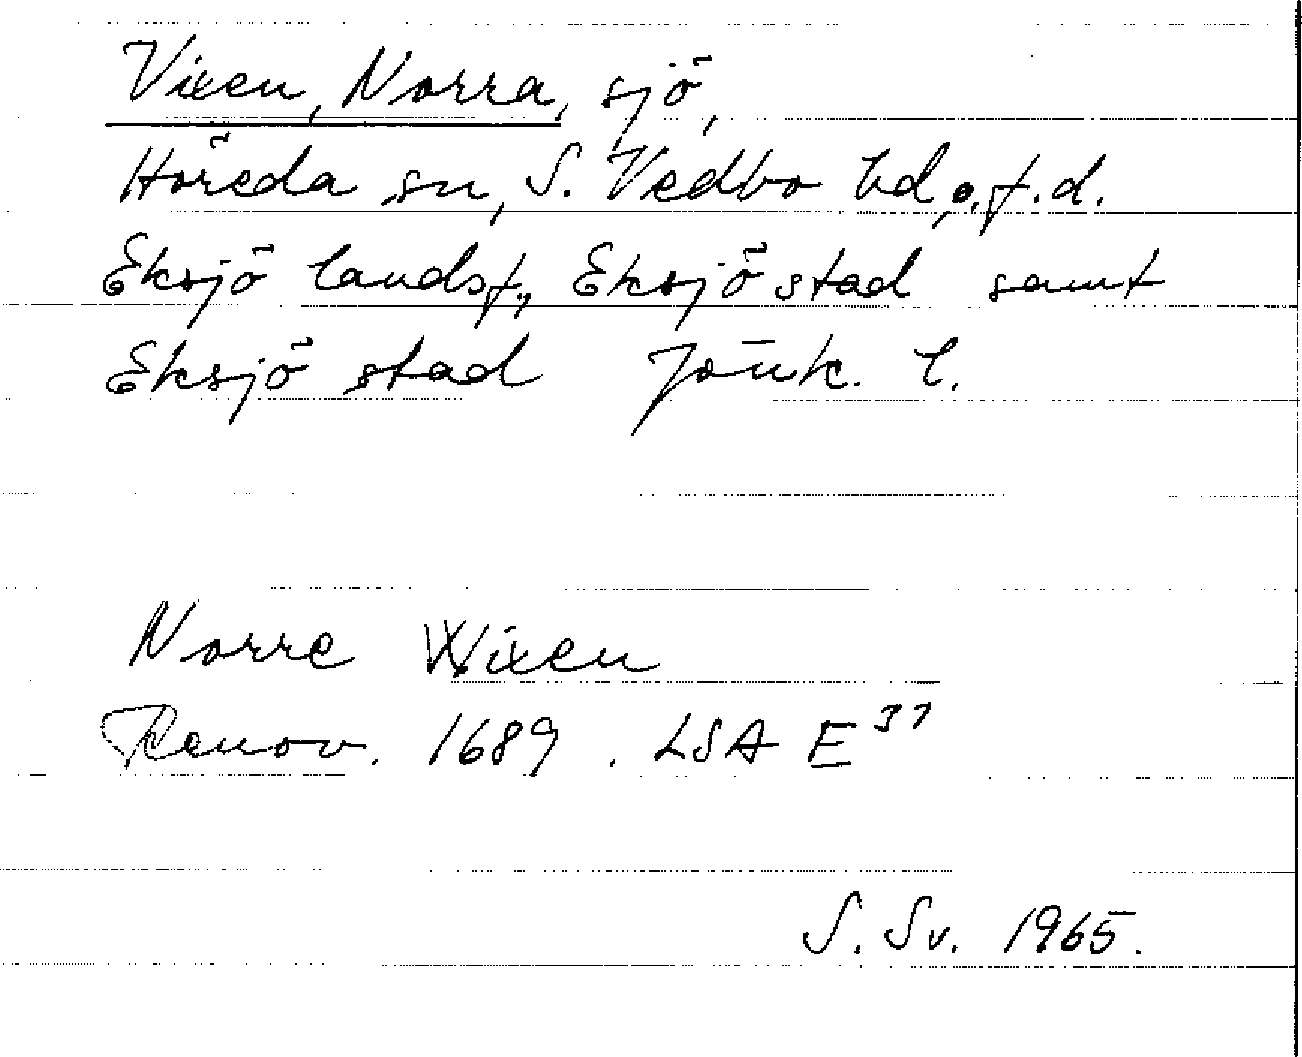 Vixen, Norra, sjö,
Höreda sn, S. Vedbo hd, o. f.d.
Eksjö landsf., Eksjö stad samt
Eksjö stad Jönk. l.
Norre Wixen
Renov. 1689. LSA E 37
S. Sv. 1965.